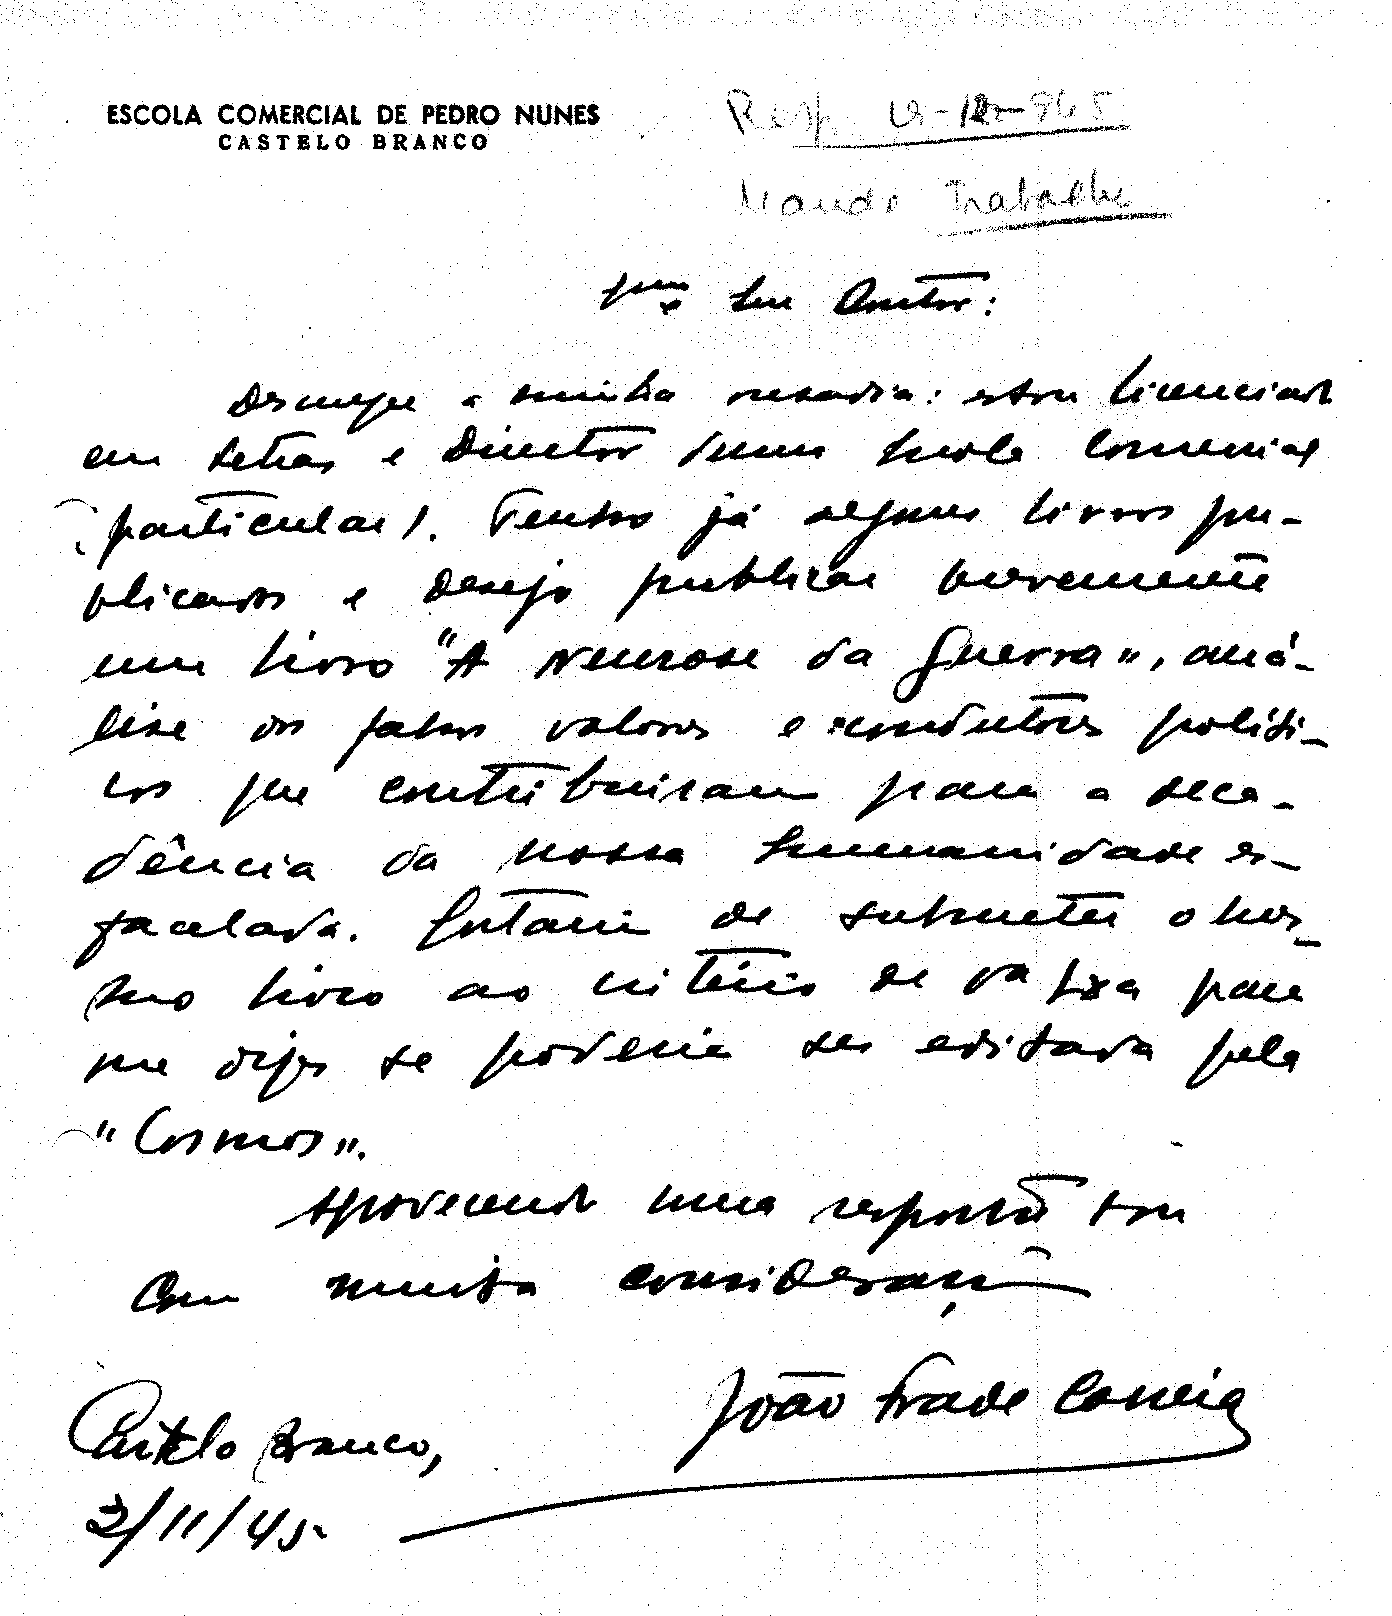 ESCOLA COMERCIAL DE PEDRO NUNES
CASTELO BRANCO
Resp.
Mande Trabalho
Senr Doutor:
Desculpe a minha ousadia: estou licenciado
em Letras e Director duma Escola Comercial
(particular). Tenho já alguns livros pu-
blicados e desejo publicar brevemente
um livro "A Neurose da Guerra", aná-
lise dos falsos valores e condutores políti-
cos que contribuiram para a deca-
dência da nossa humanidade es-
facelada. Gostaria de submeter o mes-
mo livro ao critério de Va Exa para
me dizer se poderia ser editada pela
"Cosmos".
Agradecendo uma resposta sou
Com muita consideração
João Frade Correia
Castelo Branco,
2/11/45